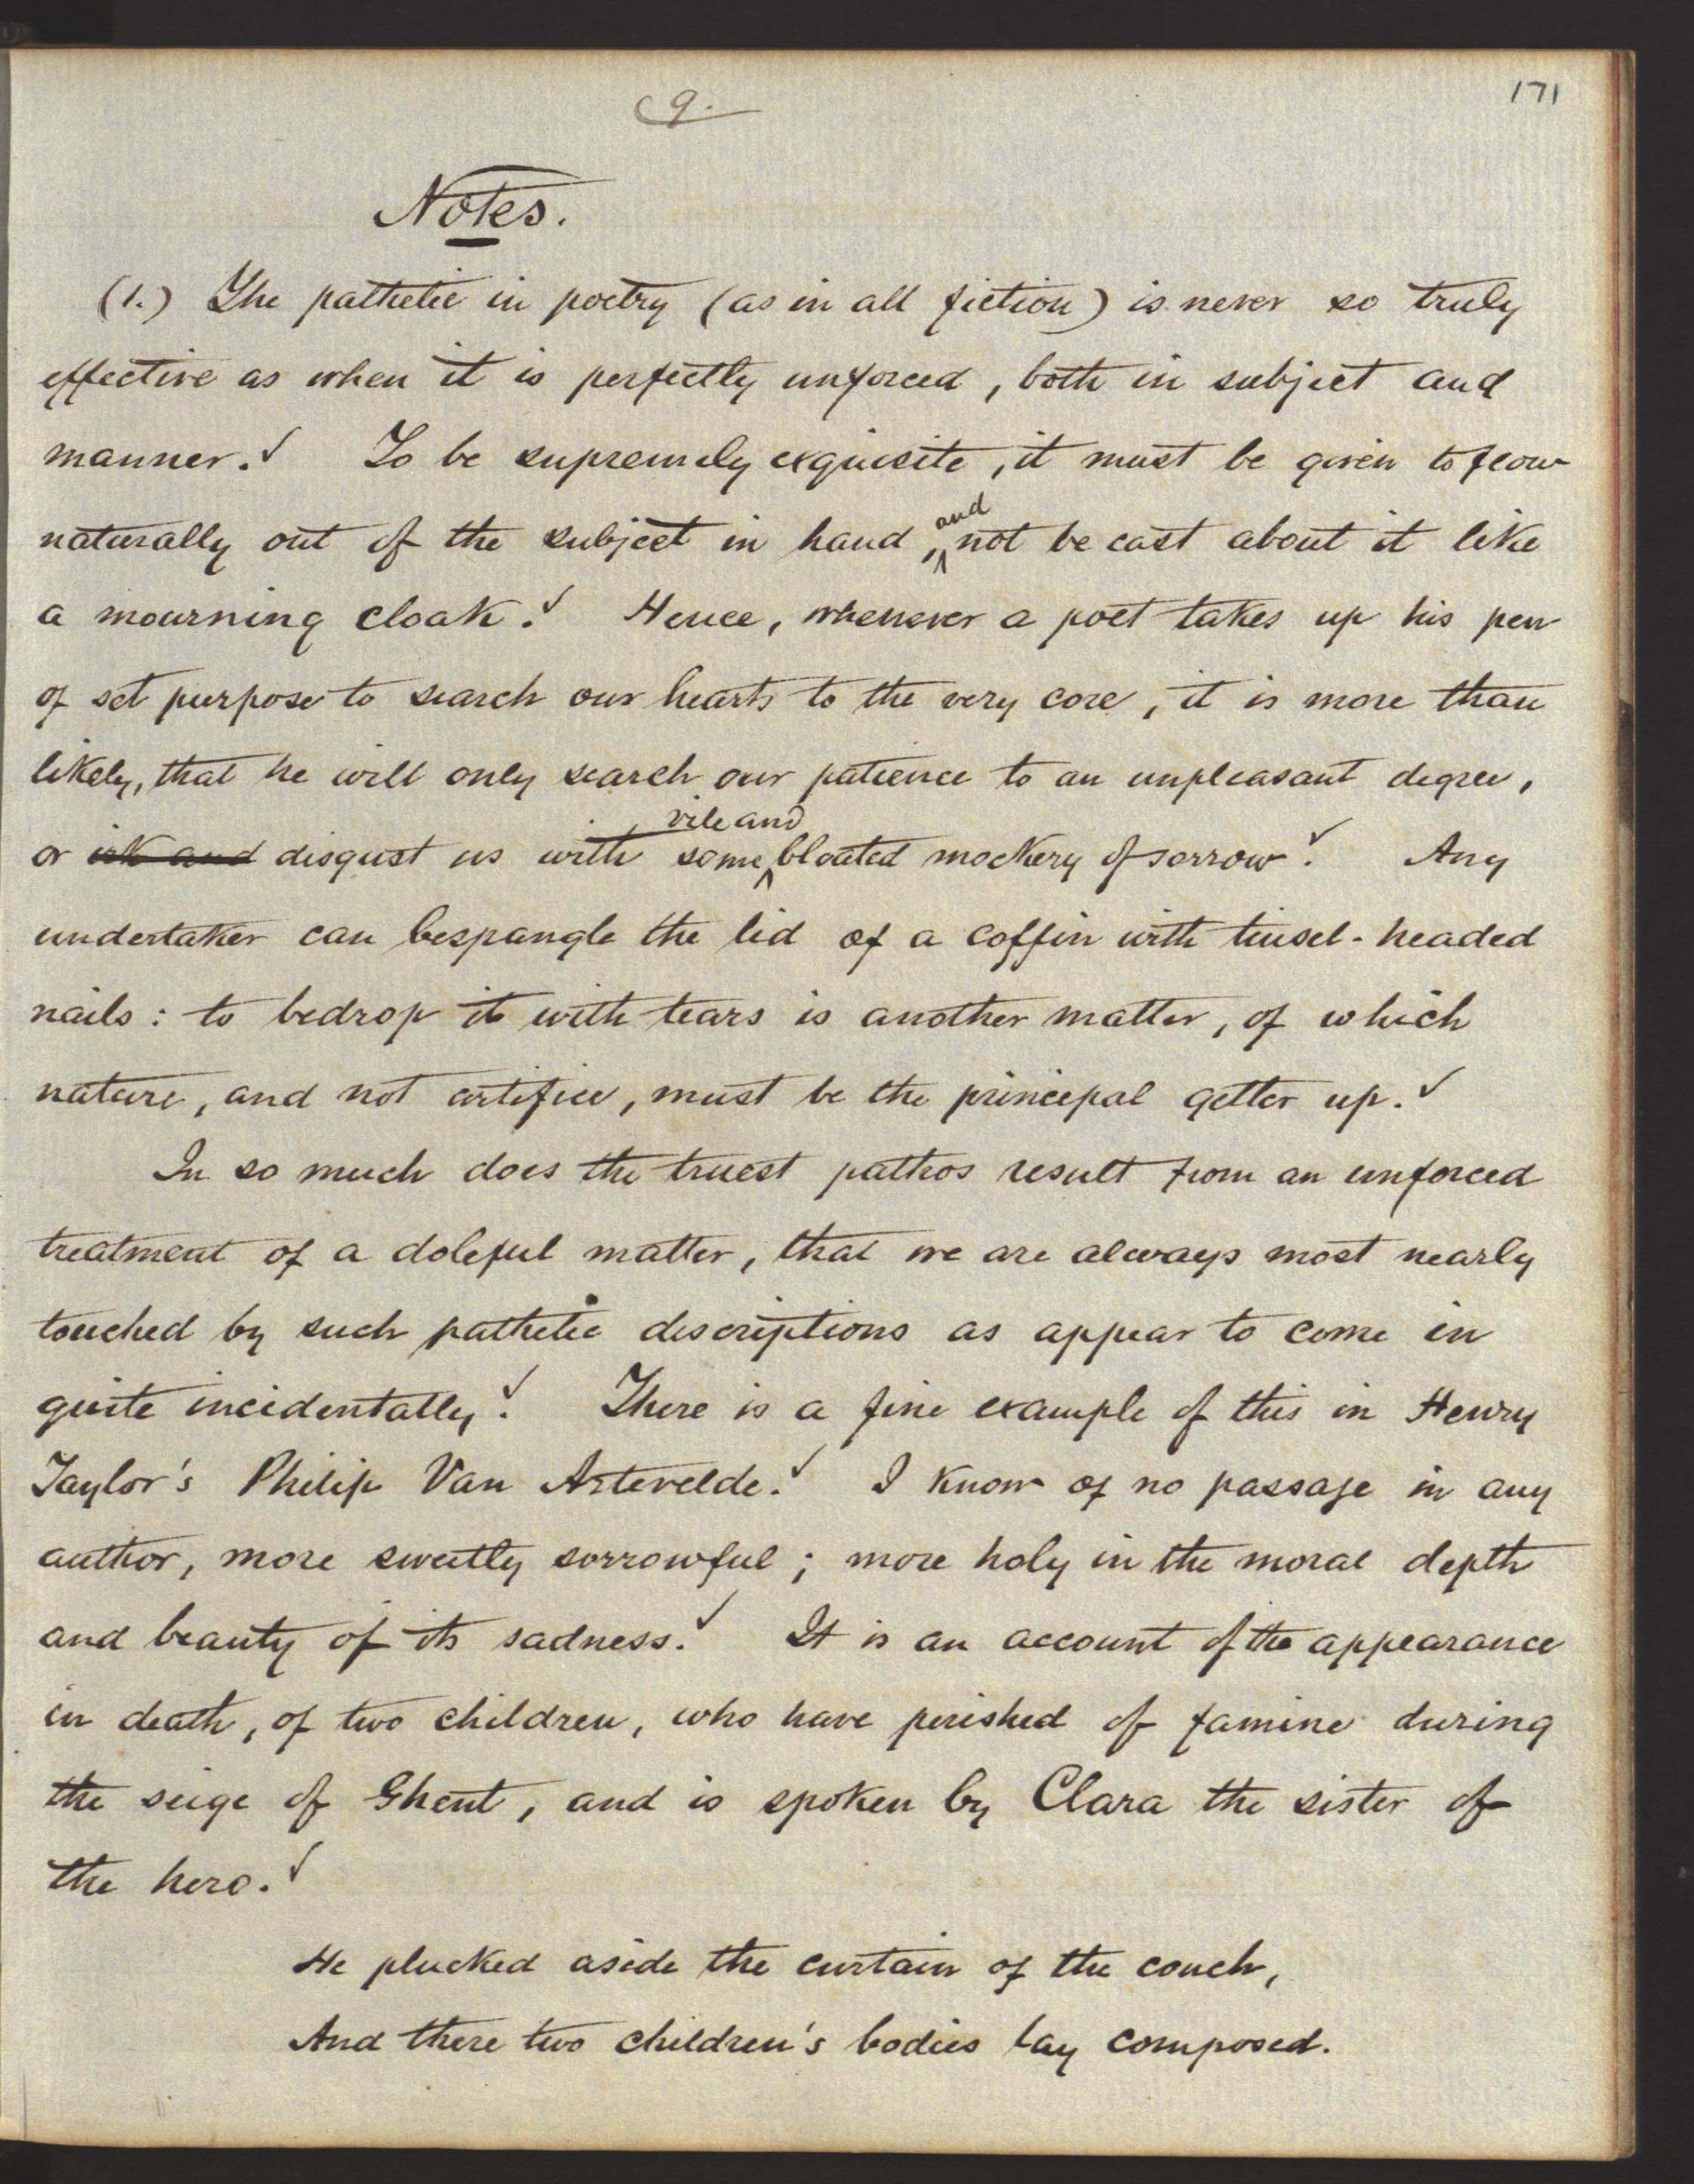 9.
171
Notes.
(1.) The pathetic in poetry (as in all fiction) is never so truly
effective as when it is perfectly unforced, both in subject and
manner. To be supremely exquisite, it must be given to flow
naturally out of the subject in hand, and not be cast about it like
a mourning cloak. Hence, whenever a poet takes up his pen
of set purpose to search our hearts to the very core, it is more than
likely, that he will only search our patience to an unpleasant degree,
or irk and disgust us with some vile and bloated mockery of sorrow. Any
undertaker can bespangle the lid of a coffin with tinsel-headed
nails: to bedrop it with tears is another matter, of which
nature, and not artifice, must be the principal getter up.
In so much does the truest pathos result from an unforced
treatment of a doleful matter, that we are always most nearly
touched by such pathetic descriptions as appear to come in
quite incidentally. There is a fine example of this in Henry
Taylor's Philip Van Artevelde. I know of no passage in any
author, more sweetly sorrowful; more holy in the moral depth
and beauty of its sadness. It is an account of the appearance
in death, of two children, who have perished of famine during
the seige of Ghent, and is spoken by Clara the sister of
the hero.
He plucked aside the curtain of the couch,
And there two children's bodies lay composed.